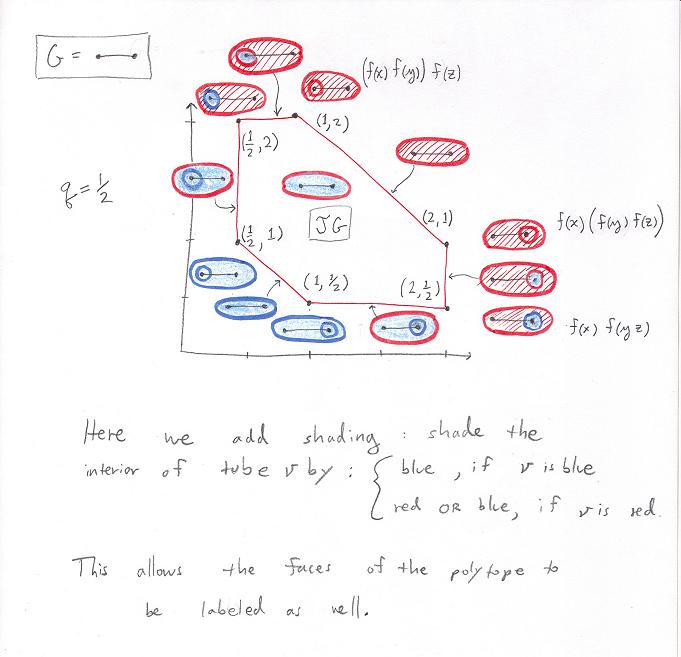 G =
(f(x) f(y)) f(z)
(1/2, 2)
(1, 2)
q = 1/2
JG
(2, 1)
f(x) (f(y) f(z))
(1/2, 1)
(1, 1/2)
(2, 1/2)
f(x) f(y z)
Here we add shading : shade the
interior of tube v by : { blue, if v is blue
red OR blue, if v is red.
This allows the faces of the polytope to
be labeled as well.